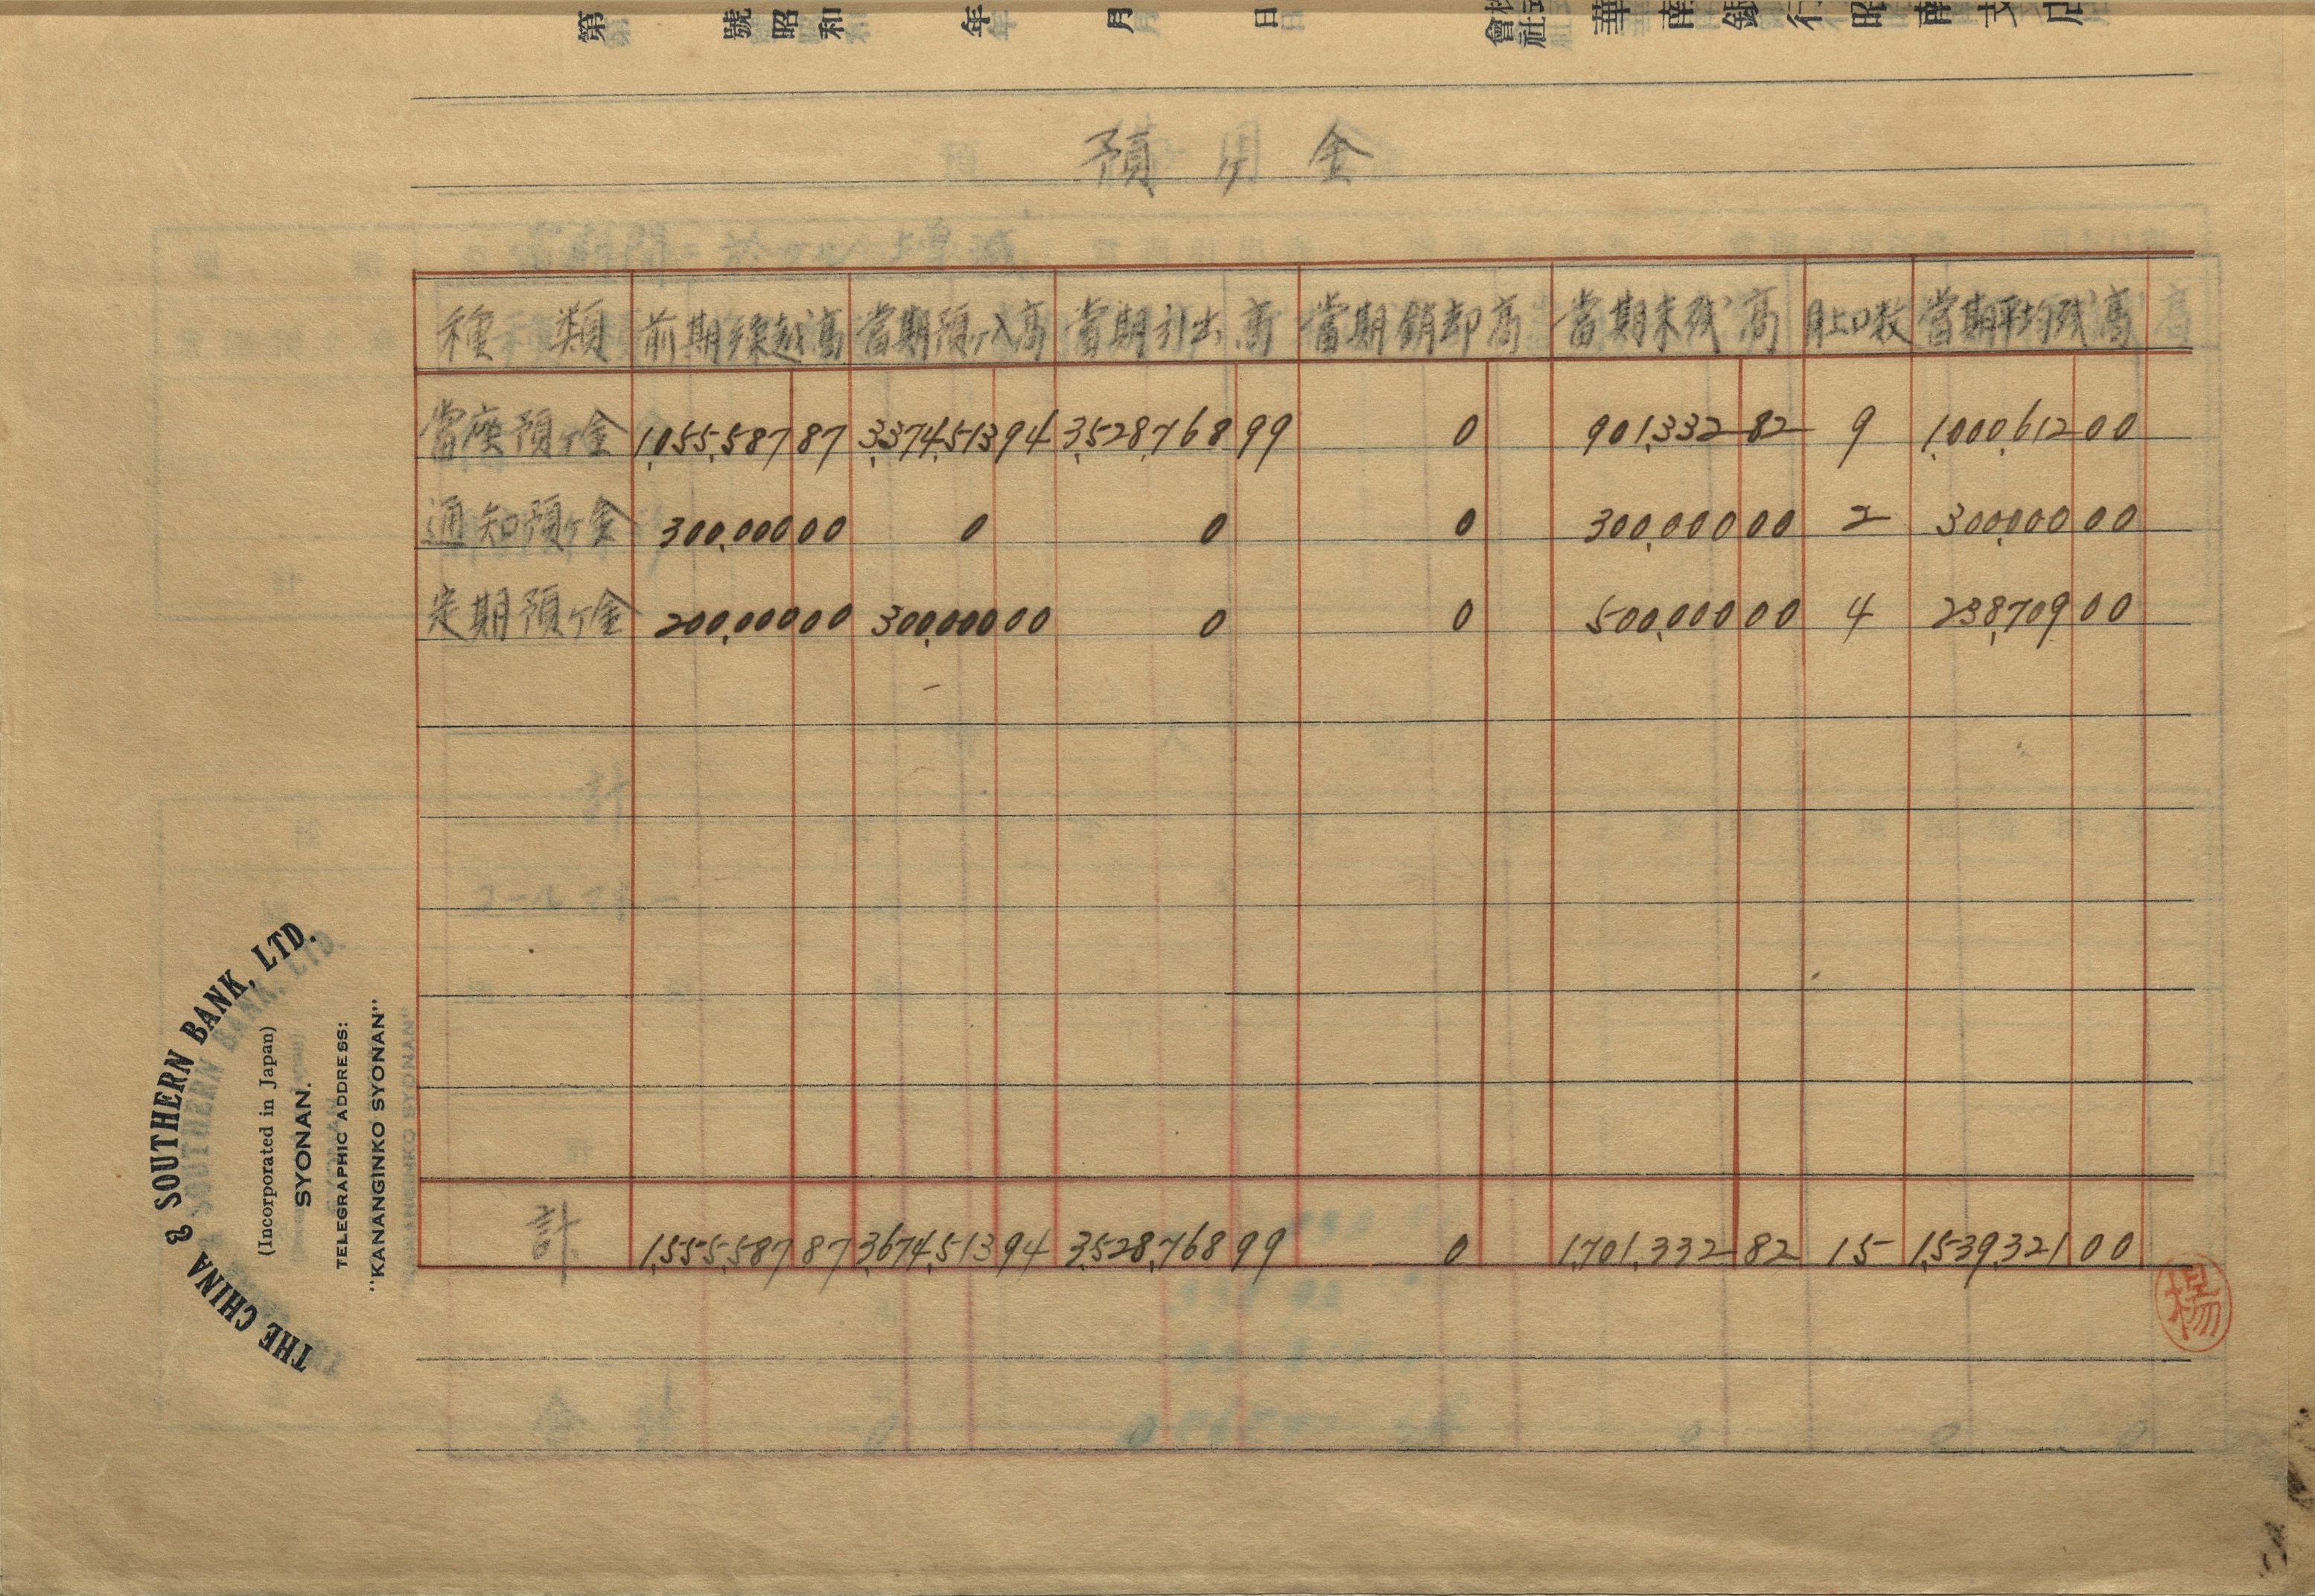 第 號 昭和 年 月 日
預ケ金
種類 前期繰越高 當期預ケ入高 當期引出高 當期銷却高 當期末残高 同上口数 當期平均残高
當座預ケ金 1,055,587 87 3,374,513 94 3,528,768 99 0 901,332 82 9 1,000,612 00
通知預ケ金 300,000 00 0 0 0 300,000 00 2 300,000 00
定期預ケ金 200,000 00 300,000 00 0 0 500,000 00 4 238,709 00
計 1,555,587 87 3,674,513 94 3,528,768 99 0 1,701,332 82 15 1,539,321 00
楊
THE CHINA & SOUTHERN BANK, LTD.
(Incorporated in Japan)
SYONAN.
TELEGRAPHIC ADDRESS:
"KANANGINKO SYONAN"